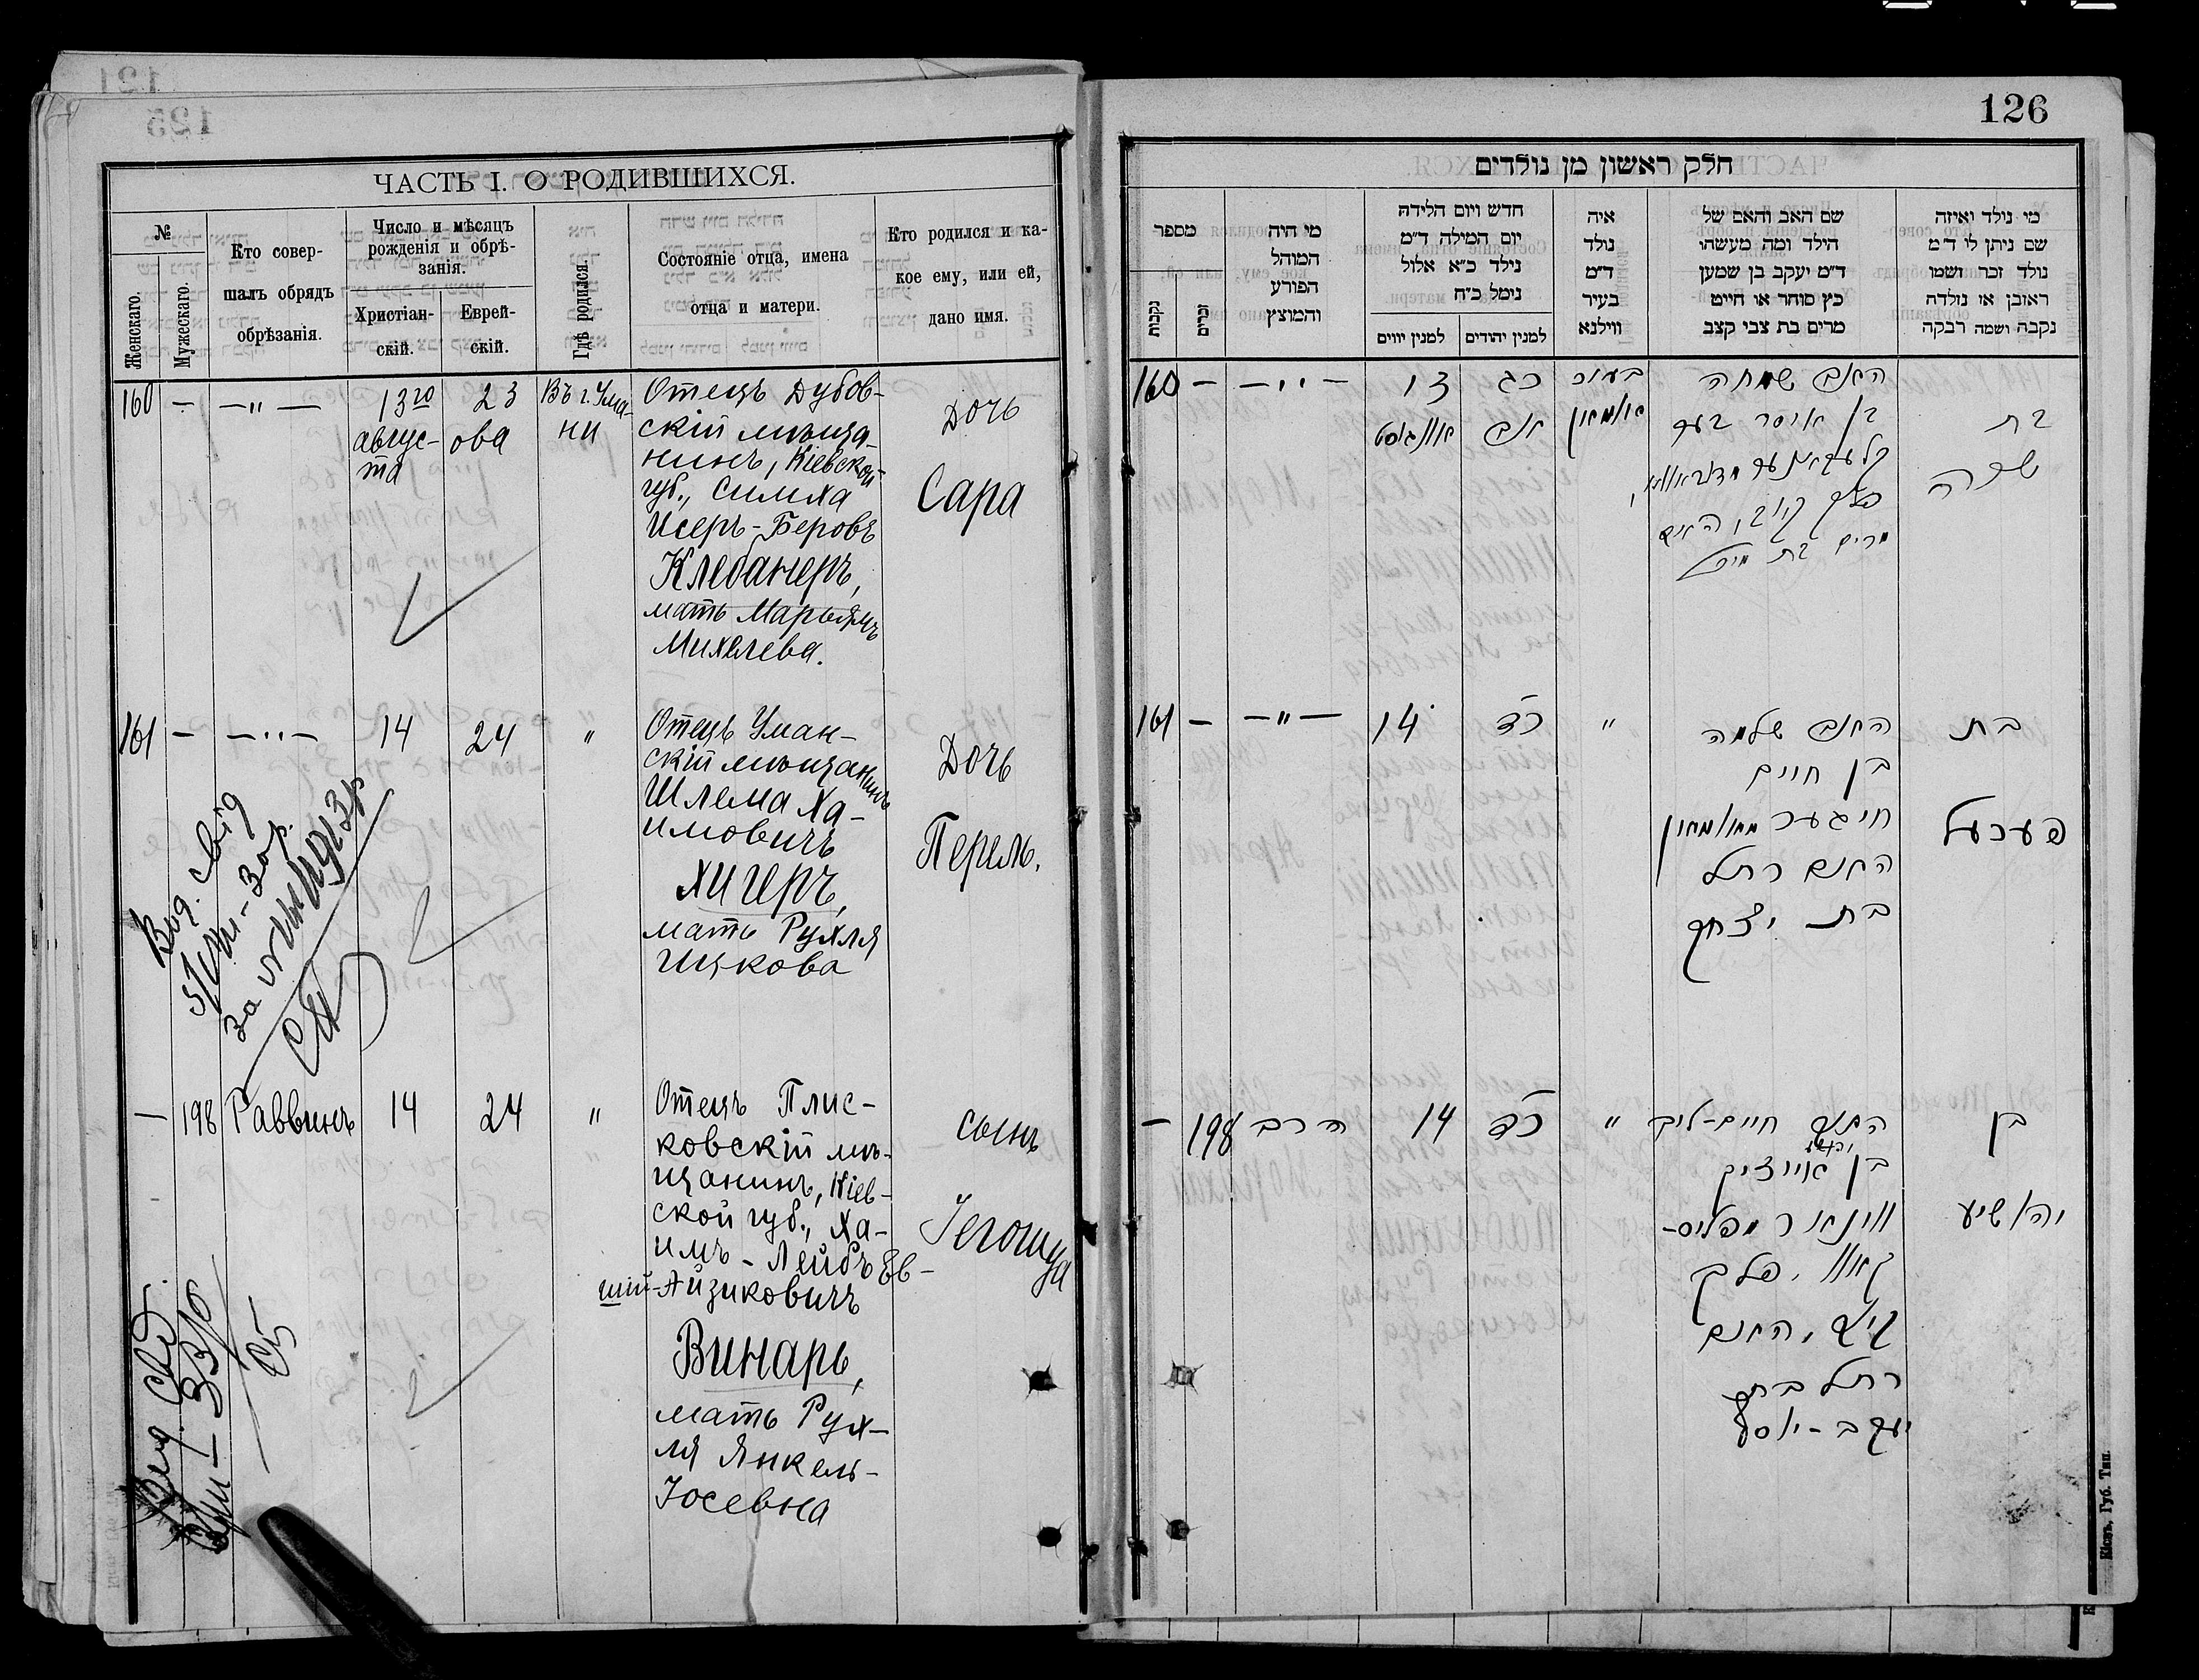 ЧАСТЬ I. О РОДИВШИХСЯ.
№
Женскаго.
Мужескаго.
Кто совер-
шалъ обрядъ
обрѣзанія.
Число и мѣсяцъ
рожденія и обрѣ-
занія.
Христіан-
скій.
Еврей-
скій.
Гдѣ родился.
Состояніе отца, имена
отца и матери.
Кто родился и ка-
кое ему, или ей,
дано имя.
160 — — " —
13го
авгус-
та
23
ова
Въ г. Ума-
ни
Отецъ Дубов-
скій мѣща-
нинъ, Кіевской
губ., Симха
Исеръ-Беровъ
Клебанеръ,
мать Марьямъ
Михелева.
Дочь
Сара
161 — — " — 14 24 "
Отецъ Уман-
скій мѣщанинъ
Шлема Ха-
имовичъ
Хигеръ,
мать Рухля
Ицкова
Дочь
Перель.
— 198 Раввинъ 14 24 "
Отецъ Плис-
ковскій мѣ-
щанинъ, Кіев-
ской губ., Ха-
имъ-Лейбъ Ев-
шій-Айзиковичъ
Винарь,
мать Рух-
ля Янкель-
Іосевна
сынъ
Іегошуа
126
חלק ראשון מן נולדים
מספר
נקבות
זכרים
מי היה
המוהל
הפורע
והמוצץ
חדש ויום הלידה
יום המילה ד״מ
נילד כ״א אלול
נימל כ״ח
למנין יווים
למנין יהודים
איה
נולד
ד״מ
בעיר
ווילנא
שם האב והאם של
הילד ומה מעשהו
ד״מ יעקב בן שמען
כץ סוחר או חייט
מרים בת צבי קצב
מי נולד ואיזה
שם ניתן לי ד״מ
נולד זכר ושמו
ראובן או נולדה
נקבה ושמה רבקה
160 — — " —
13
אוגוסט
כג
אב
בעיר
אומאן
האב שמחה
בן איסר בער
האם
מרים בת מיכל
בת
שרה
161 — — " — 14 כד "
האב שלמה
בן חיים
חיגער מאומאן
האם רחל
בת יצחק
בת
פערעל
— 198 הרב 14 כד "
האב חיים-ליב
בן אייזיק
ווינאר מפליס-
קאוו, פלך
קיוב, האם
רחל בת
יעקב-יוסף
בן
יהושיע
Кіевъ, Губ. Тип.